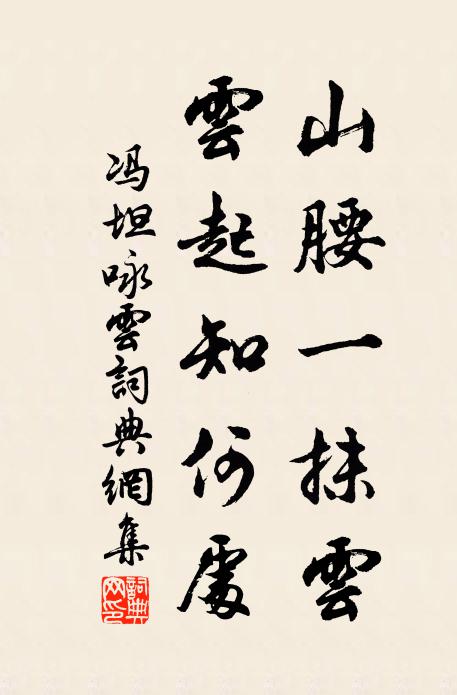 山腰一抹雲
雲起知何處
冯坦咏雲詞典網集
詞典網印